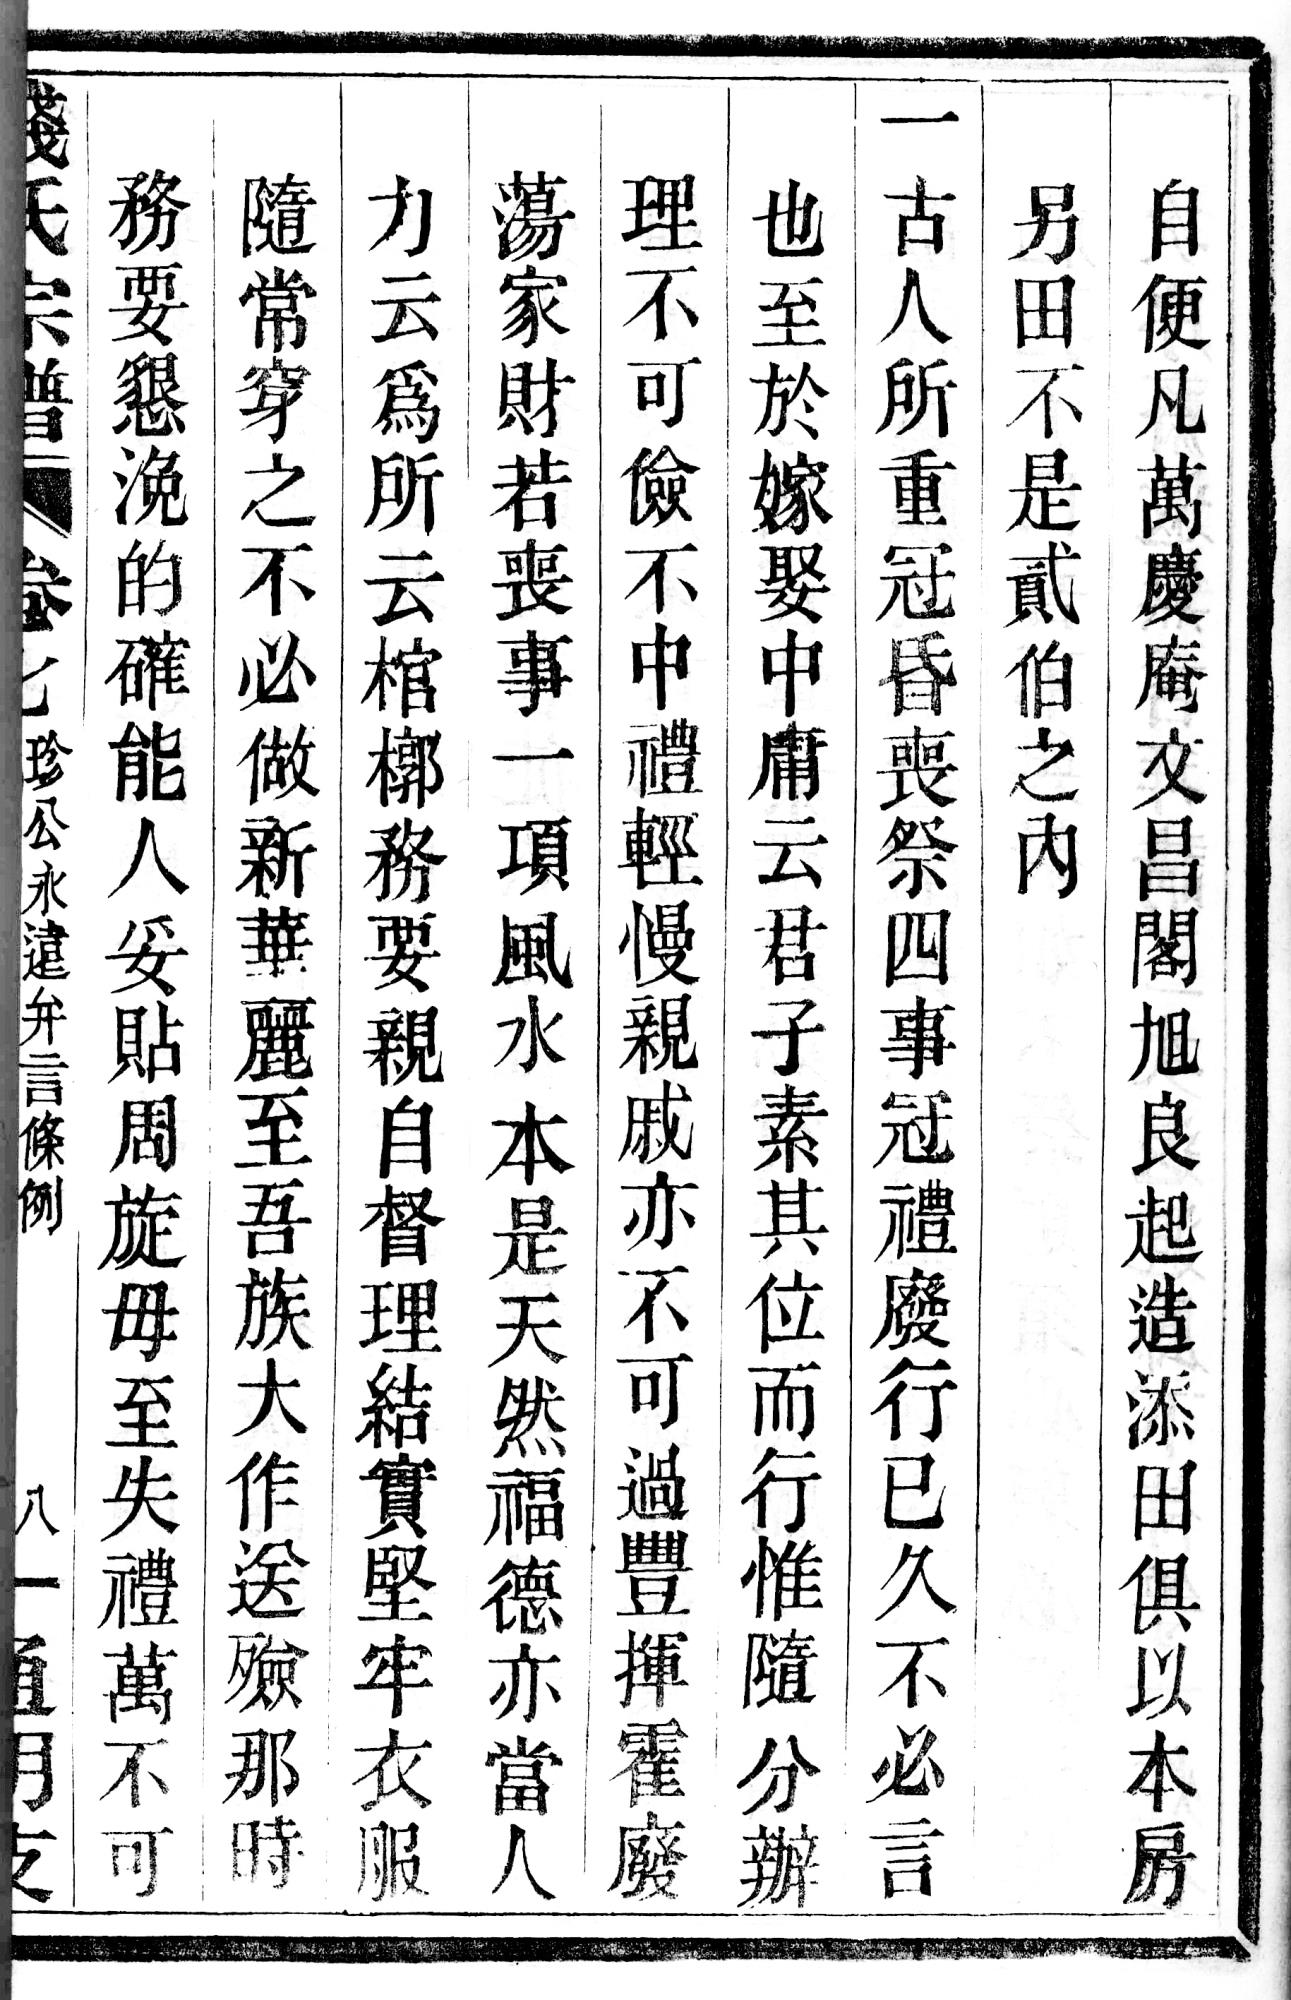 自便凡萬慶庵文昌閣旭良起造添田俱以本房
另田不是貳伯之內
一古人所重冠昏喪祭四事冠禮廢行已久不必言
也至於嫁娶中庸云君子素其位而行惟隨分辦
理不可儉不中禮輕慢親戚亦不可過豐揮霍廢
蕩家財若喪事一項風水本是天然福德亦當人
力云爲所云棺槨務要親自督理結實堅牢衣服
隨常穿之不必做新華麗至吾族大作送殮那時
務要懇浼的確能人妥貼周旋毋至失禮萬不可
氏宗譜 卷七 珍公永遠弁言條例 八一 通明支